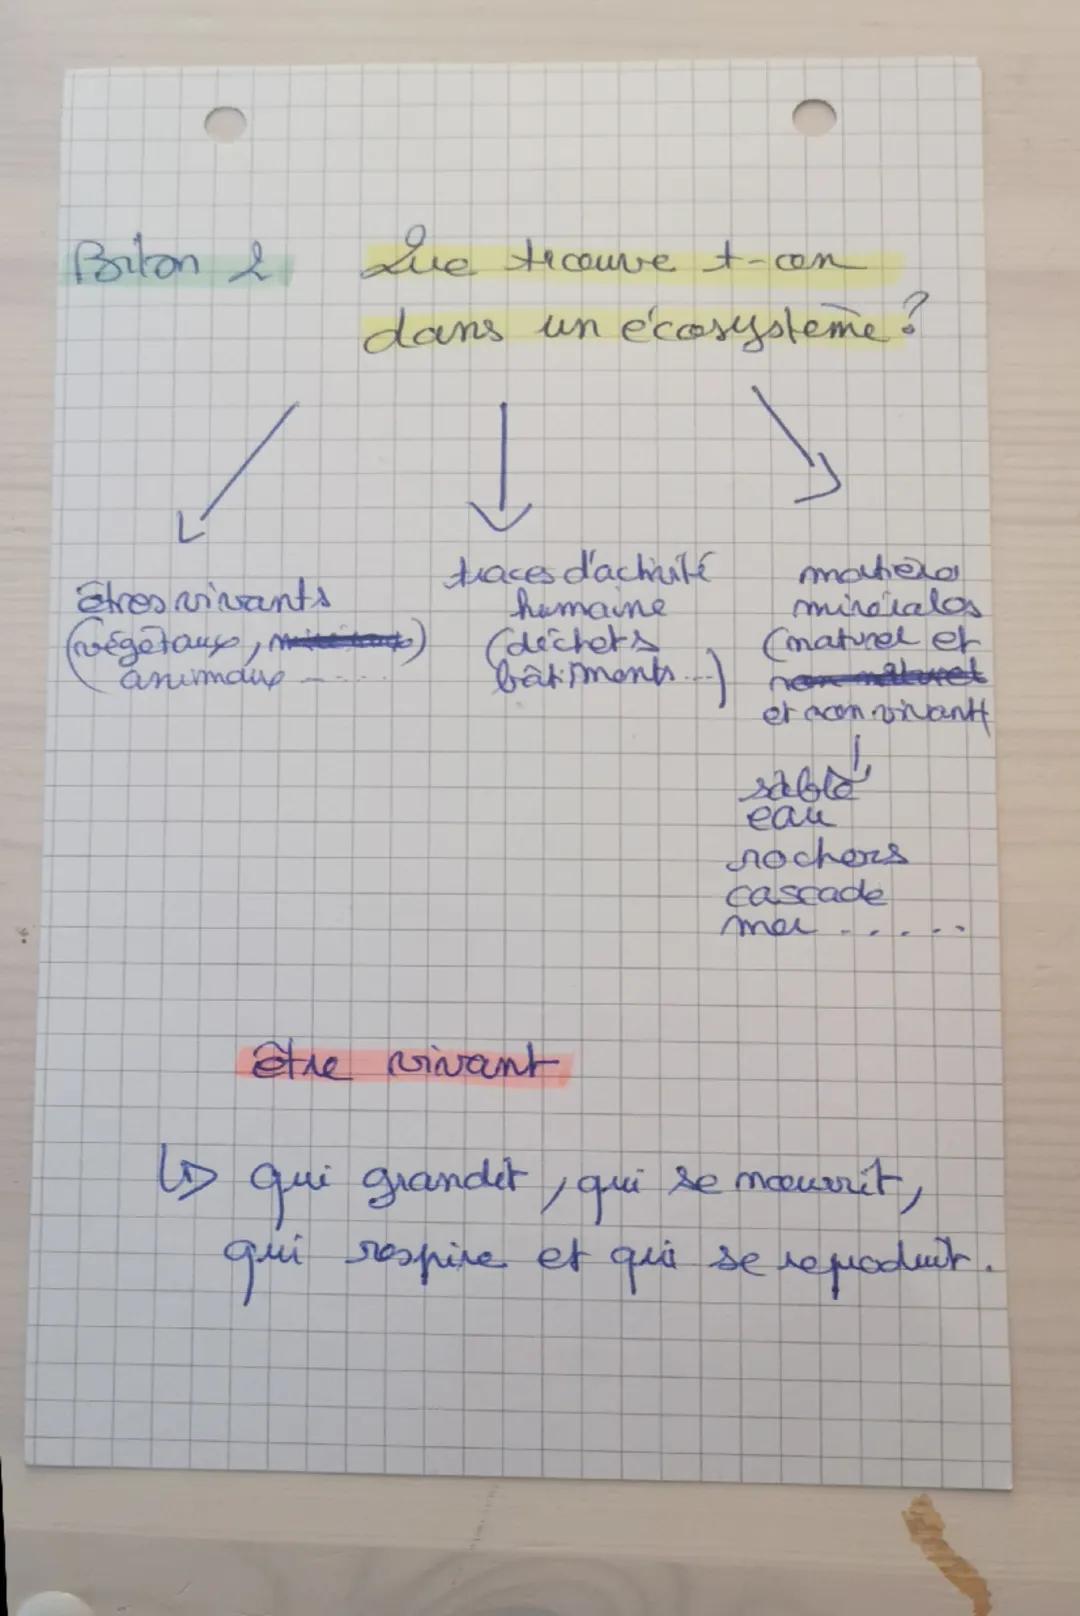 Bilan 2 Que trouve t-on
dans un écosystème ?
êtres vivants
(végétaux,
animaux ......)
traces d'activité
humaine
(déchets
bâtiments...)
matière
minérales
(naturel et
non naturel
et non vivant)
sable
eau
rochers
cascade
mer .....
être vivant
qui grandit, qui se nourrit,
qui respire et qui se reproduit.